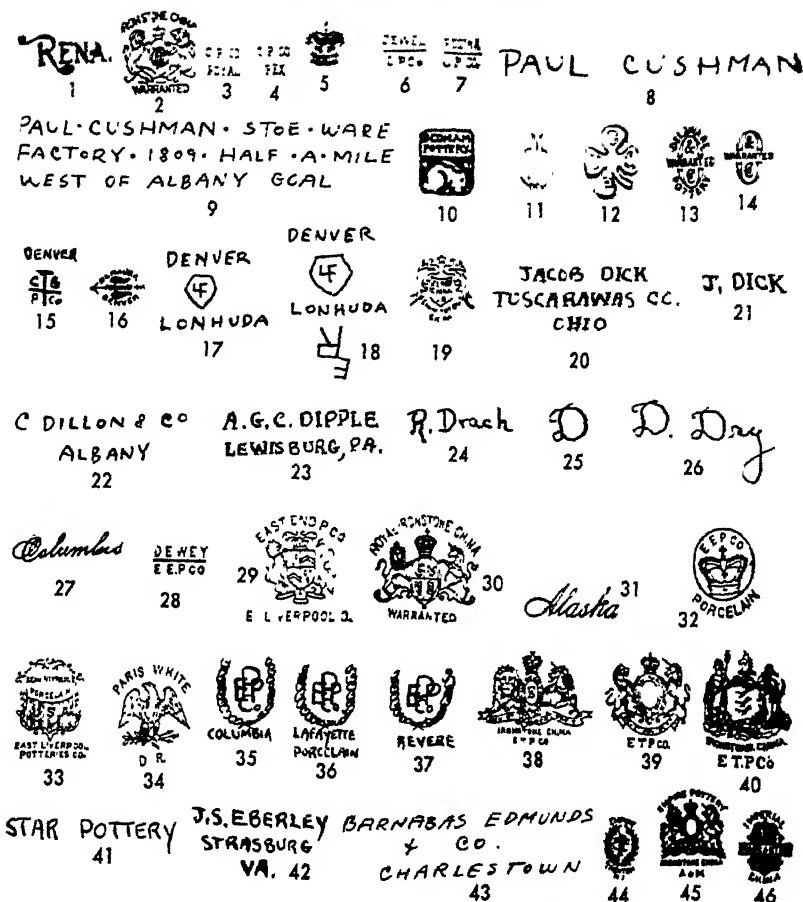 RENA.
1
IRONSTONE CHINA
WARRANTED
2
C.P.CO
ROYAL
3
C.P.CO
REX
4
5
DEWEY
C.P.Co
6
C.P.CO
7
PAUL CUSHMAN
8
PAUL·CUSHMAN·STOE·WARE
FACTORY·1809·HALF·A·MILE
WEST OF ALBANY GOAL
9
DEDHAM
POTTERY
10
11
12
DELAWARE
WARRANTED
POTTERY
13
WARRANTED
14
DENVER
C G
P Co
15
DENVER
16
DENVER
LF
LONHUDA
17
DENVER
LF
LONHUDA
18
19
JACOB DICK
TUSCARAWAS CC.
CHIO
20
J, DICK
21
C DILLON & Co
ALBANY
22
A.G.C. DIPPLE
LEWISBURG, PA.
23
R. Drach
24
D
25
D. Dry
26
Columbus
27
DEWEY
E E.P CO
28
EAST END P. CO
E. LIVERPOOL O.
29
ROYAL IRONSTONE CHINA
WARRANTED
30
Alaska
31
E E P CO
PORCELAIN
32
PORCELAIN
EAST LIVERPOOL
POTTERIES CO.
33
PARIS WHITE
D R.
34
COLUMBIA
35
LAFAYETTE
PORCELAIN
36
REVERE
37
IRONSTONE CHINA
E T P CO
38
E T P CO.
39
IRONSTONE CHINA
E T. P Co
40
STAR POTTERY
41
J.S. EBERLEY
STRASBURG
VA.
42
BARNABAS EDMUNDS
& CO.
CHARLESTOWN
43
44
EMPIRE POTTERY
IRONSTONE CHINA
A & M
45
IMPERIAL
CHINA
46